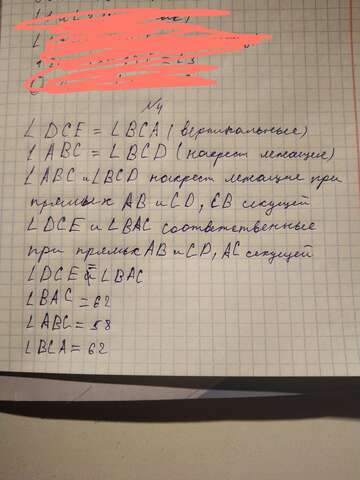 №4
∠DCE = ∠BCA (вертикальные)
∠ABC = ∠BCD (накрест лежащие)
∠ABC и ∠BCD накрест лежащие при
прямых AB и CD, CB секущей
∠DCE и ∠BAC соответственные
при прямых AB и CD, AC секущей
∠DCE = ∠BAC
∠BAC = 62
∠ABC = 58
∠BCA = 62